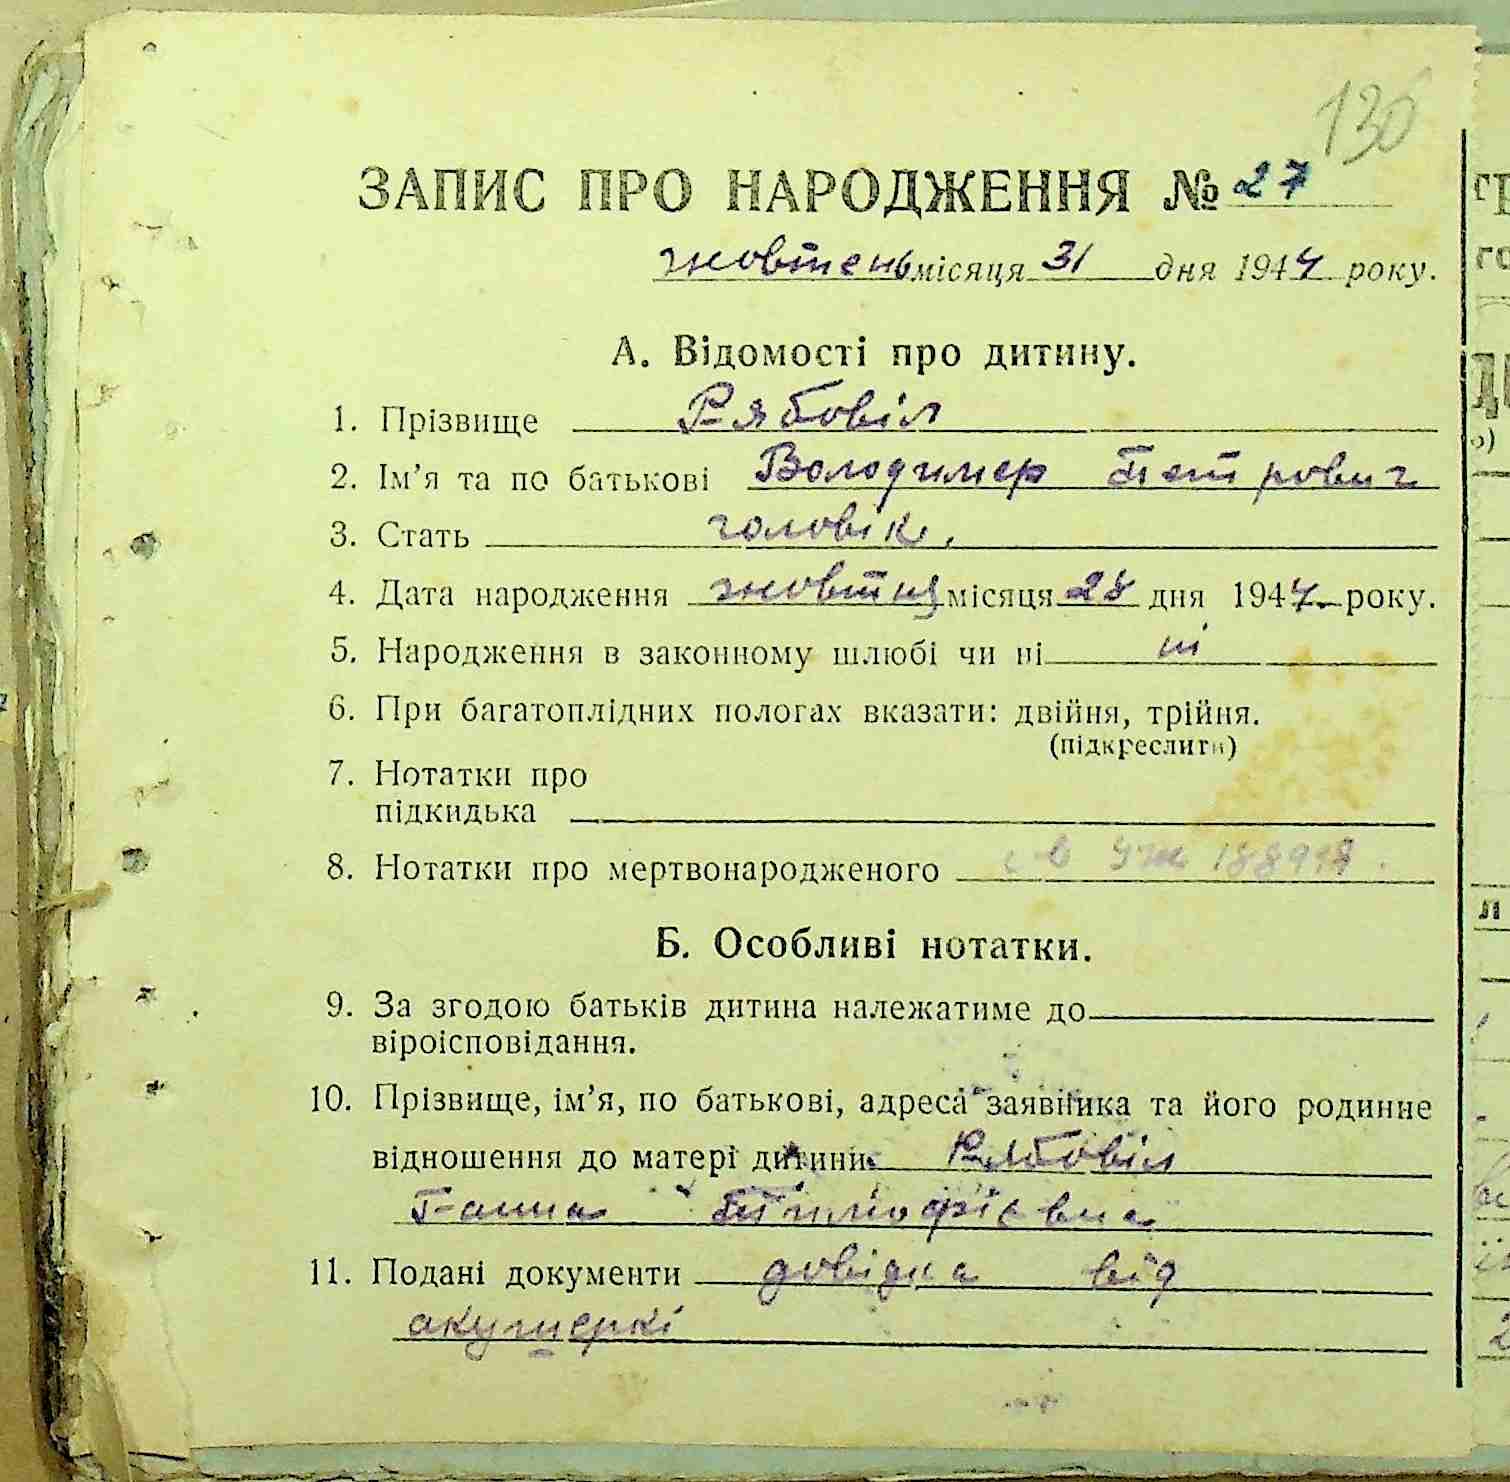 130
ЗАПИС ПРО НАРОДЖЕННЯ № 27
жовтень місяця 31 дня 1944 року.
А. Відомості про дитину.
1. Прізвище Рябовіл
2. Ім'я та по батькові Володимер Петрович
3. Стать чоловік.
4. Дата народження жовтня місяця 28 дня 1944. року.
5. Народження в законному шлюбі чи ні ні
6. При багатоплідних пологах вказати: двійня, трійня.
(підкреслити)
7. Нотатки про
підкидька
8. Нотатки про мертвонародженого
Б. Особливі нотатки.
9. За згодою батьків дитина належатиме до
віроісповідання.
10. Прізвище, ім'я, по батькові, адреса заявника та його родинне
відношення до матері дитини Рябовіл
Ганна Тімофієвна
11. Подані документи довідка від
акушеркі